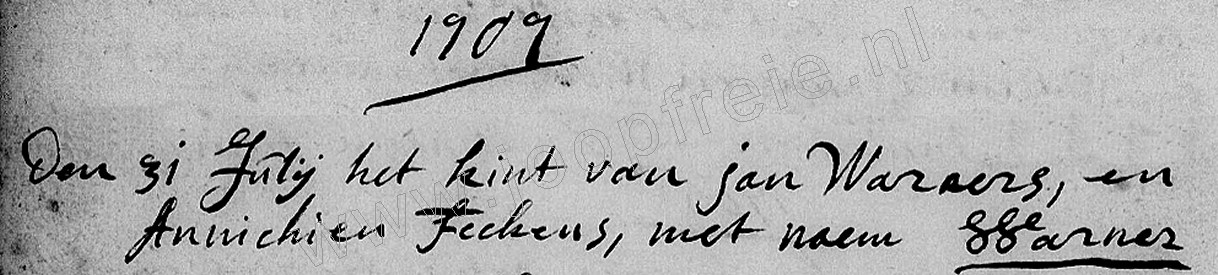 1709
Den 31 Julij het kint van jan Warners, en
Annichien Feckens, met naem Warner
www.joopfreie.nl